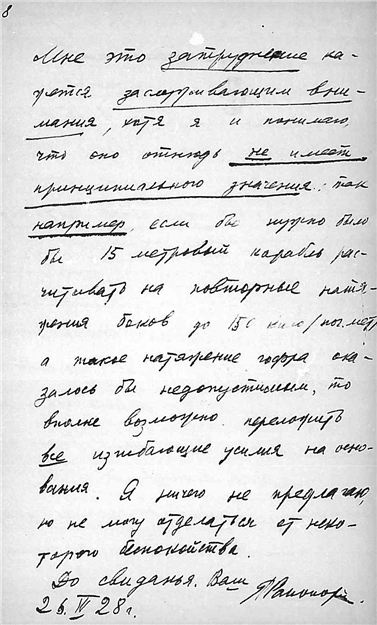 8
Мне это затруднение ка-
жется заслуживающим вни-
мания, хотя я и понимаю,
что оно отнюдь не имеет
принципиального значения: так
например, если бы нужно было
бы 15 метровый корабль рас-
читывать на повторные натя-
жения боков до 150 кило/пог.метр
а такое натяжение гофра ока-
залось бы недопустимым, то
вполне возможно переложить
все изгибающие усилия на осно-
вания. Я ничего не предлагаю,
но не могу отделаться от неко-
торого беспокойства.
До свиданья. Ваш
26.IV 28 г.